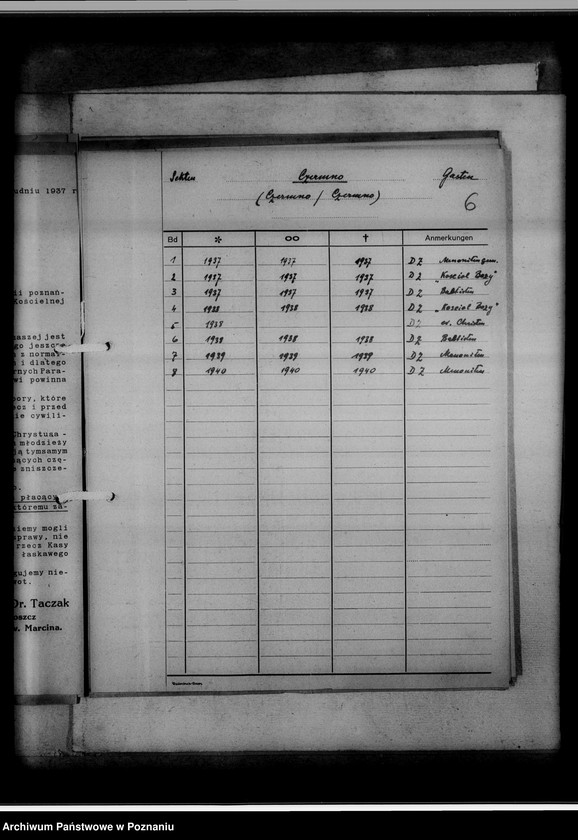 udniu 1937 r
ii poznań-
Kościelnej
naszej jest
go jeszcze
z normal-
i dlatego
rnych Para-
wi powinna
pory, które
ecz i przed
ie cywili-
Chrystusa -
młodzieży
ją tymsamym
ących czę-
zniszcze-
płacący
któremu za-
iemy mogli
prawy, nie
rzecz Kasy
łaskawego
gujemy nie-
rot.
Dr. Taczak
oszcz
w. Marcina.
Sekten Czermno Gastin
(Czermno / Czermno)
6
Bd * ∞ † Anmerkungen
1 1937 1937 1937 DZ
2 1937 1937 1937 DZ "Kościół Boży"
3 1937 1937 1937 DZ Babtisten
4 1938 1938 1938 DZ "Kościół Boży"
5 1938 DZ ev. Christen
6 1938 1938 1938 DZ Babtisten
7 1939 1939 1939 DZ Menoniten
8 1940 1940 1940 DZ Menoniten
Archiwum Państwowe w Poznaniu